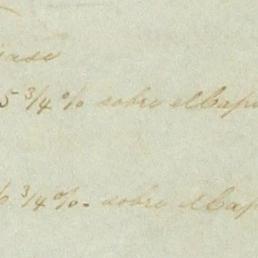 5 3/4 % sobre el Cap
6 3/4 %. sobre el Cap